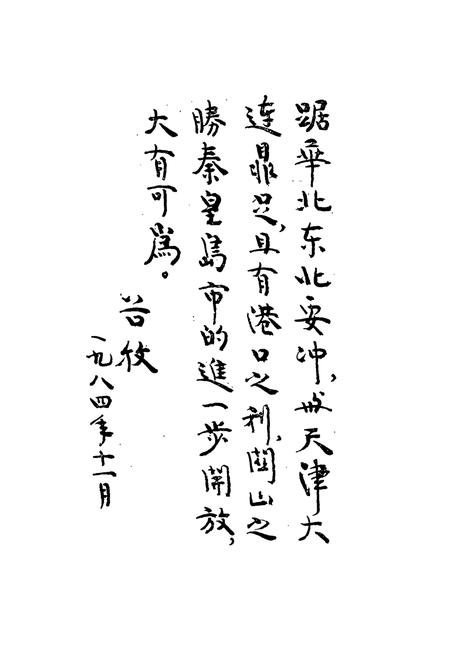 踞華北东北要冲，天津大
连鼎足，且有港口之利，関山之
勝秦皇島市的進一步開放，
大有可爲。
谷牧
一九八四年十一月